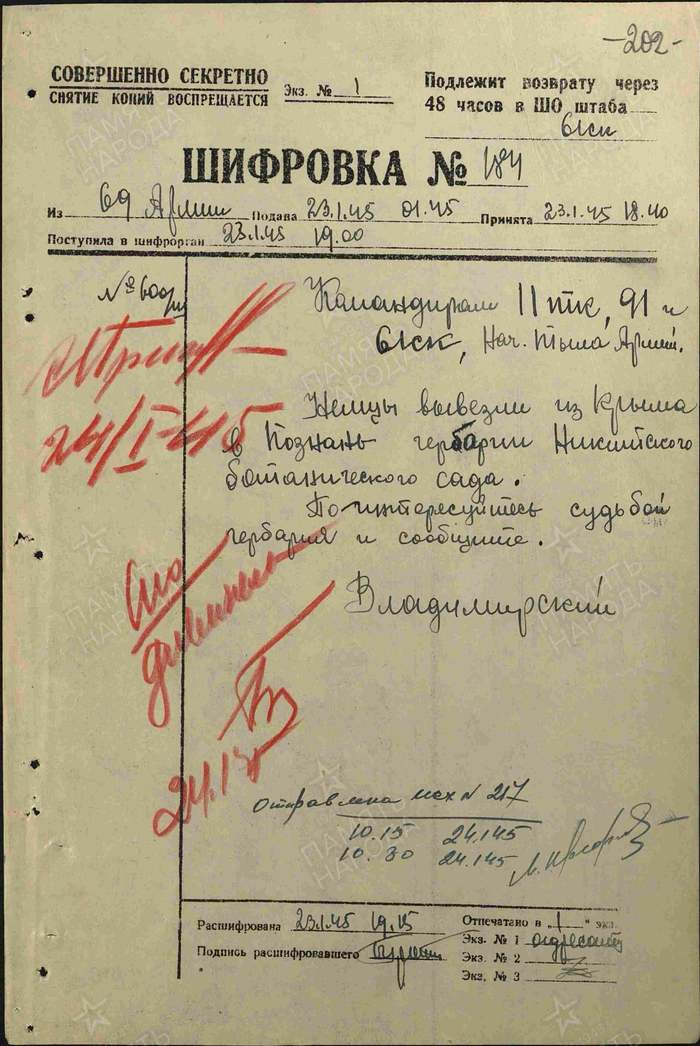 -202-
СОВЕРШЕННО СЕКРЕТНО
СНЯТИЕ КОПИЙ ВОСПРЕЩАЕТСЯ
Экз. № 1
Подлежит возврату через
48 часов в ШО штаба
61ск
ШИФРОВКА № 184
Из 69 Армии Подана 23.1.45 01.45 Принята 23.1.45 18.40
Поступила в шифрорган 23.1.45 19.00
Командирам 11 тк, 91 и
61ск, Нач. Тыла Армии.
24/I-45
Немцы вывезли из Крыма
в Познань гербарии Никитского
ботанического сада.
Поинтересуйтесь судьбой
гербария и сообщите.
Владимирский
24.1
отправлена исх N 217
10.15 24.1.45
10.30 24.1.45
Расшифрована 23.1.45 19.15
Подпись расшифровавшего
Отпечатано в 1 экз.
Экз. № 1 адресату
Экз. № 2
Экз. № 3
ПАМЯТЬ НАРОДА